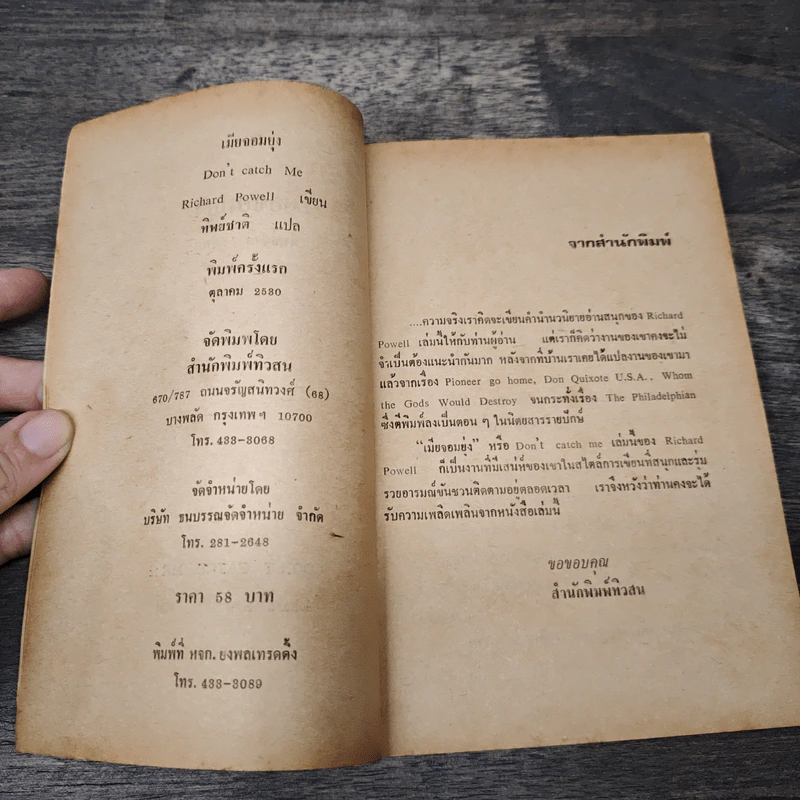 เมียจอมยุ่ง
Don't catch Me
Richard Powell เขียน
ทิพย์ชาติ แปล
พิมพ์ครั้งแรก
ตุลาคม 2530
จัดพิมพโดย
สำนักพิมพ์ทิวสน
670/787 ถนนจรัญสนิทวงศ์ (68)
บางพลัด กรุงเทพฯ 10700
โทร. 433-3068
จัดจำหน่ายโดย
บริษัท ธนบรรณจัดจำหน่าย จำกัด
โทร. 281-2648
ราคา 58 บาท
พิมพ์ที่ หจก. ยงพลเทรดดิ้ง
โทร. 433-3089
จากสำนักพิมพ์
....ความจริงเราคิดจะเขียนคำนำนวนิยายอ่านสนุกของ Richard
Powell เล่มนี้ให้กับท่านผู้อ่าน แต่เราก็คิดว่างานของเขาคงจะไม่
จำเป็นต้องแนะนำกันมาก หลังจากที่บ้านเราเคยได้แปลงานของเขามา
แล้วจากเรื่อง Pioneer go home, Don Quixote U.S.A., Whom
the Gods Would Destroy จนกระทั่งเรื่อง The Philadelphian
ซึ่งตีพิมพ์ลงเป็นตอน ๆ ในนิตยสารรายปักษ์
“เมียจอมยุ่ง” หรือ Don't catch me เล่มนี้ของ Richard
Powell ก็เป็นงานที่มีเสน่ห์ของเขาในสไตล์การเขียนที่สนุกและรุ่ม
รวยอารมณ์ขันชวนติดตามอยู่ตลอดเวลา เราจึงหวังว่าท่านคงจะได้
รับความเพลิดเพลินจากหนังสือเล่มนี้
ขอขอบคุณ
สำนักพิมพ์ทิวสน